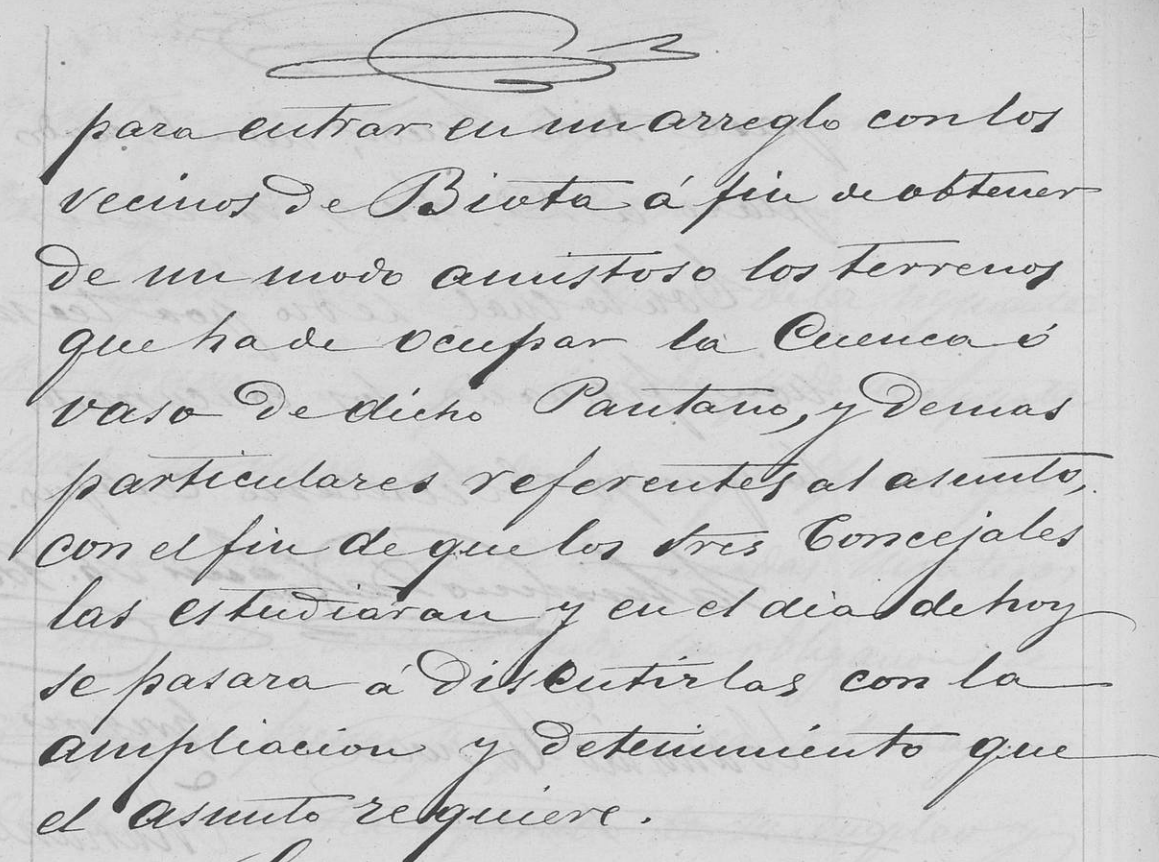 para entrar en un arreglo con los
vecinos de Biota á fin de obtener
de un modo amistoso los terrenos
que ha de ocupar la Cuenca ó
vaso de dicho Pantano, y demas
particulares referentes al asunto,
con el fin de que los tres Concejales
las estudiaran y en el dia de hoy
se pasara á discutirlas con la
ampliacion y detenimiento que
el asunto requiere.